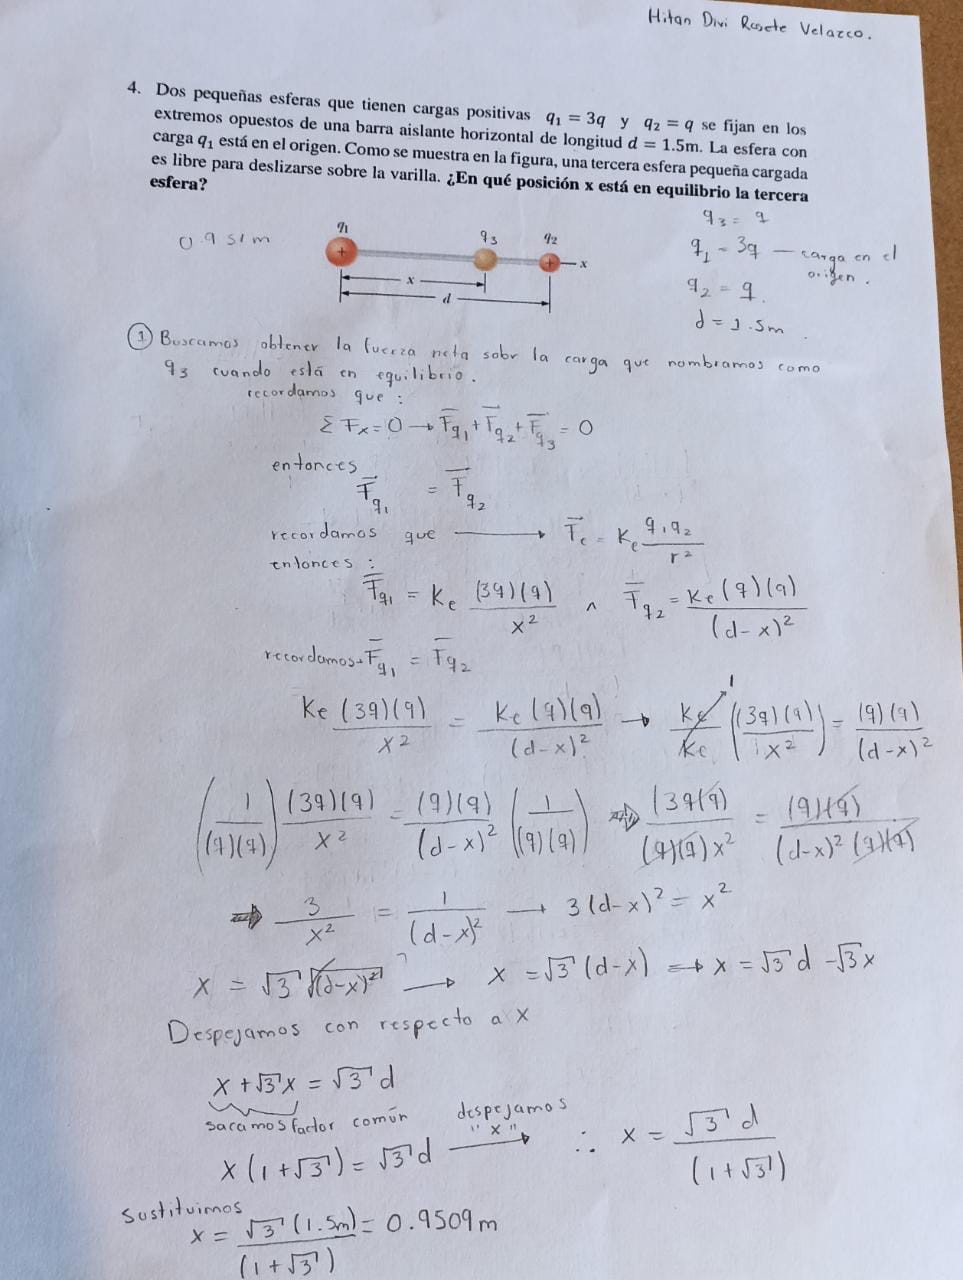 Hitan Divi Rosete Velazco.
4. Dos pequeñas esferas que tienen cargas positivas q₁ = 3q y q₂ = q se fijan en los
extremos opuestos de una barra aislante horizontal de longitud d = 1.5m. La esfera con
carga q₁ está en el origen. Como se muestra en la figura, una tercera esfera pequeña cargada
es libre para deslizarse sobre la varilla. ¿En qué posición x está en equilibrio la tercera
esfera?
q₃ = q
q₁ = 3q — carga en el
origen.
q₂ = q.
d = 1.5m
0.951m
q₁ q₃ q₂
+ + x
x
d
① Buscamos obtener la fuerza neta sobr la carga que nombramos como
q₃ cuando está en equilibrio.
recordamos que:
Σ Fx = 0 → F̅q₁ + F̅q₂ + F̅q₃ = 0
entonces
F̅q₁ = F̅q₂
recordamos que → F⃗e = Ke q₁q₂ / r²
entonces:
F̅q₁ = Ke (3q)(q) / x² ∧ F̅q₂ = Ke (q)(q) / (d-x)²
recordamos→ F̅q₁ = F̅q₂
Ke (3q)(q) / x² = Ke (q)(q) / (d-x)² → Ke / Ke ((3q)(q) / x²) = (q)(q) / (d-x)²
1
(1 / (q)(q)) (3q)(q) / x² = (q)(q) / (d-x)² (1 / (q)(q)) ⇒ (3q(q) / (q)(q) x² = (q)(q) / (d-x)² (q)(q)
⇒ 3 / x² = 1 / (d-x)² → 3(d-x)² = x²
x = √3 √(d-x)² → x = √3 (d-x) ⇒ x = √3 d - √3x
Despejamos con respecto a x
x + √3x = √3 d
sacamos factor común
x (1 + √3) = √3 d despejamos "x" → ∴ x = √3 d / (1 + √3)
Sustituimos
x = √3 (1.5m) / (1 + √3) = 0.9509 m